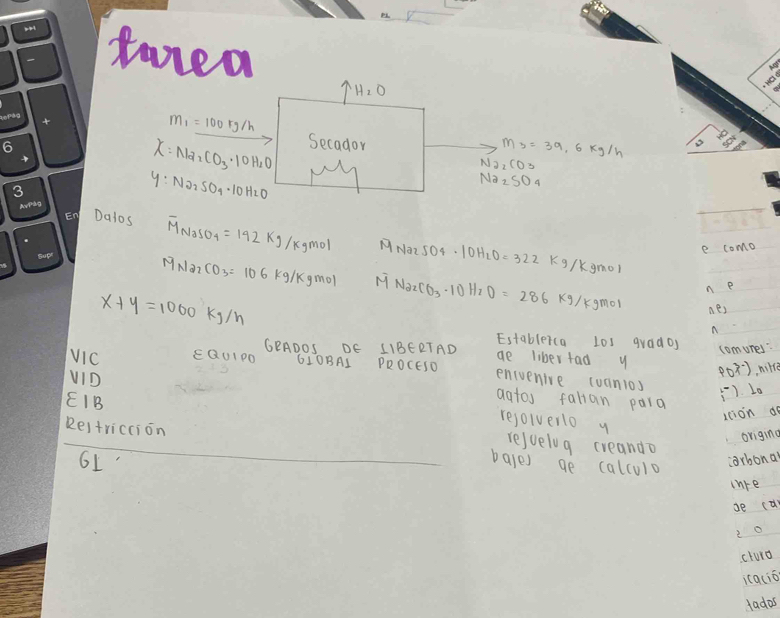 tarea
↑H2O
m1 = 100 kg/h
Secador
X: Na2CO3·10H2O
Y: Na2SO4·10H2O
m3 = 39,6 kg/h
Na2CO3
Na2SO4
Datos
M̄NaSO4 = 142 Kg/Kgmol
M̄Na2SO4·10H2O = 322 Kg/Kgmol
M̄Na2CO3 = 106 Kg/Kgmol
M̄Na2CO3·10H2O = 286 Kg/Kgmol
X+Y = 1000 Kg/h
GRADOS DE LIBERTAD
EQUIPO GLOBAL PROCESO
VIC
VID
EIB
Restricción
GL
Establezca los grados
de libertad y
encuentre cuantos
datos faltan para
resolverlo y
resuelva creando
bases de calculo
e como
n e
nes
n
comunes:
nitra
lo
ción de
origina
carbona
de ca
2 0
ctura
icació
tados
6
3
AvPág
Supr
+
-